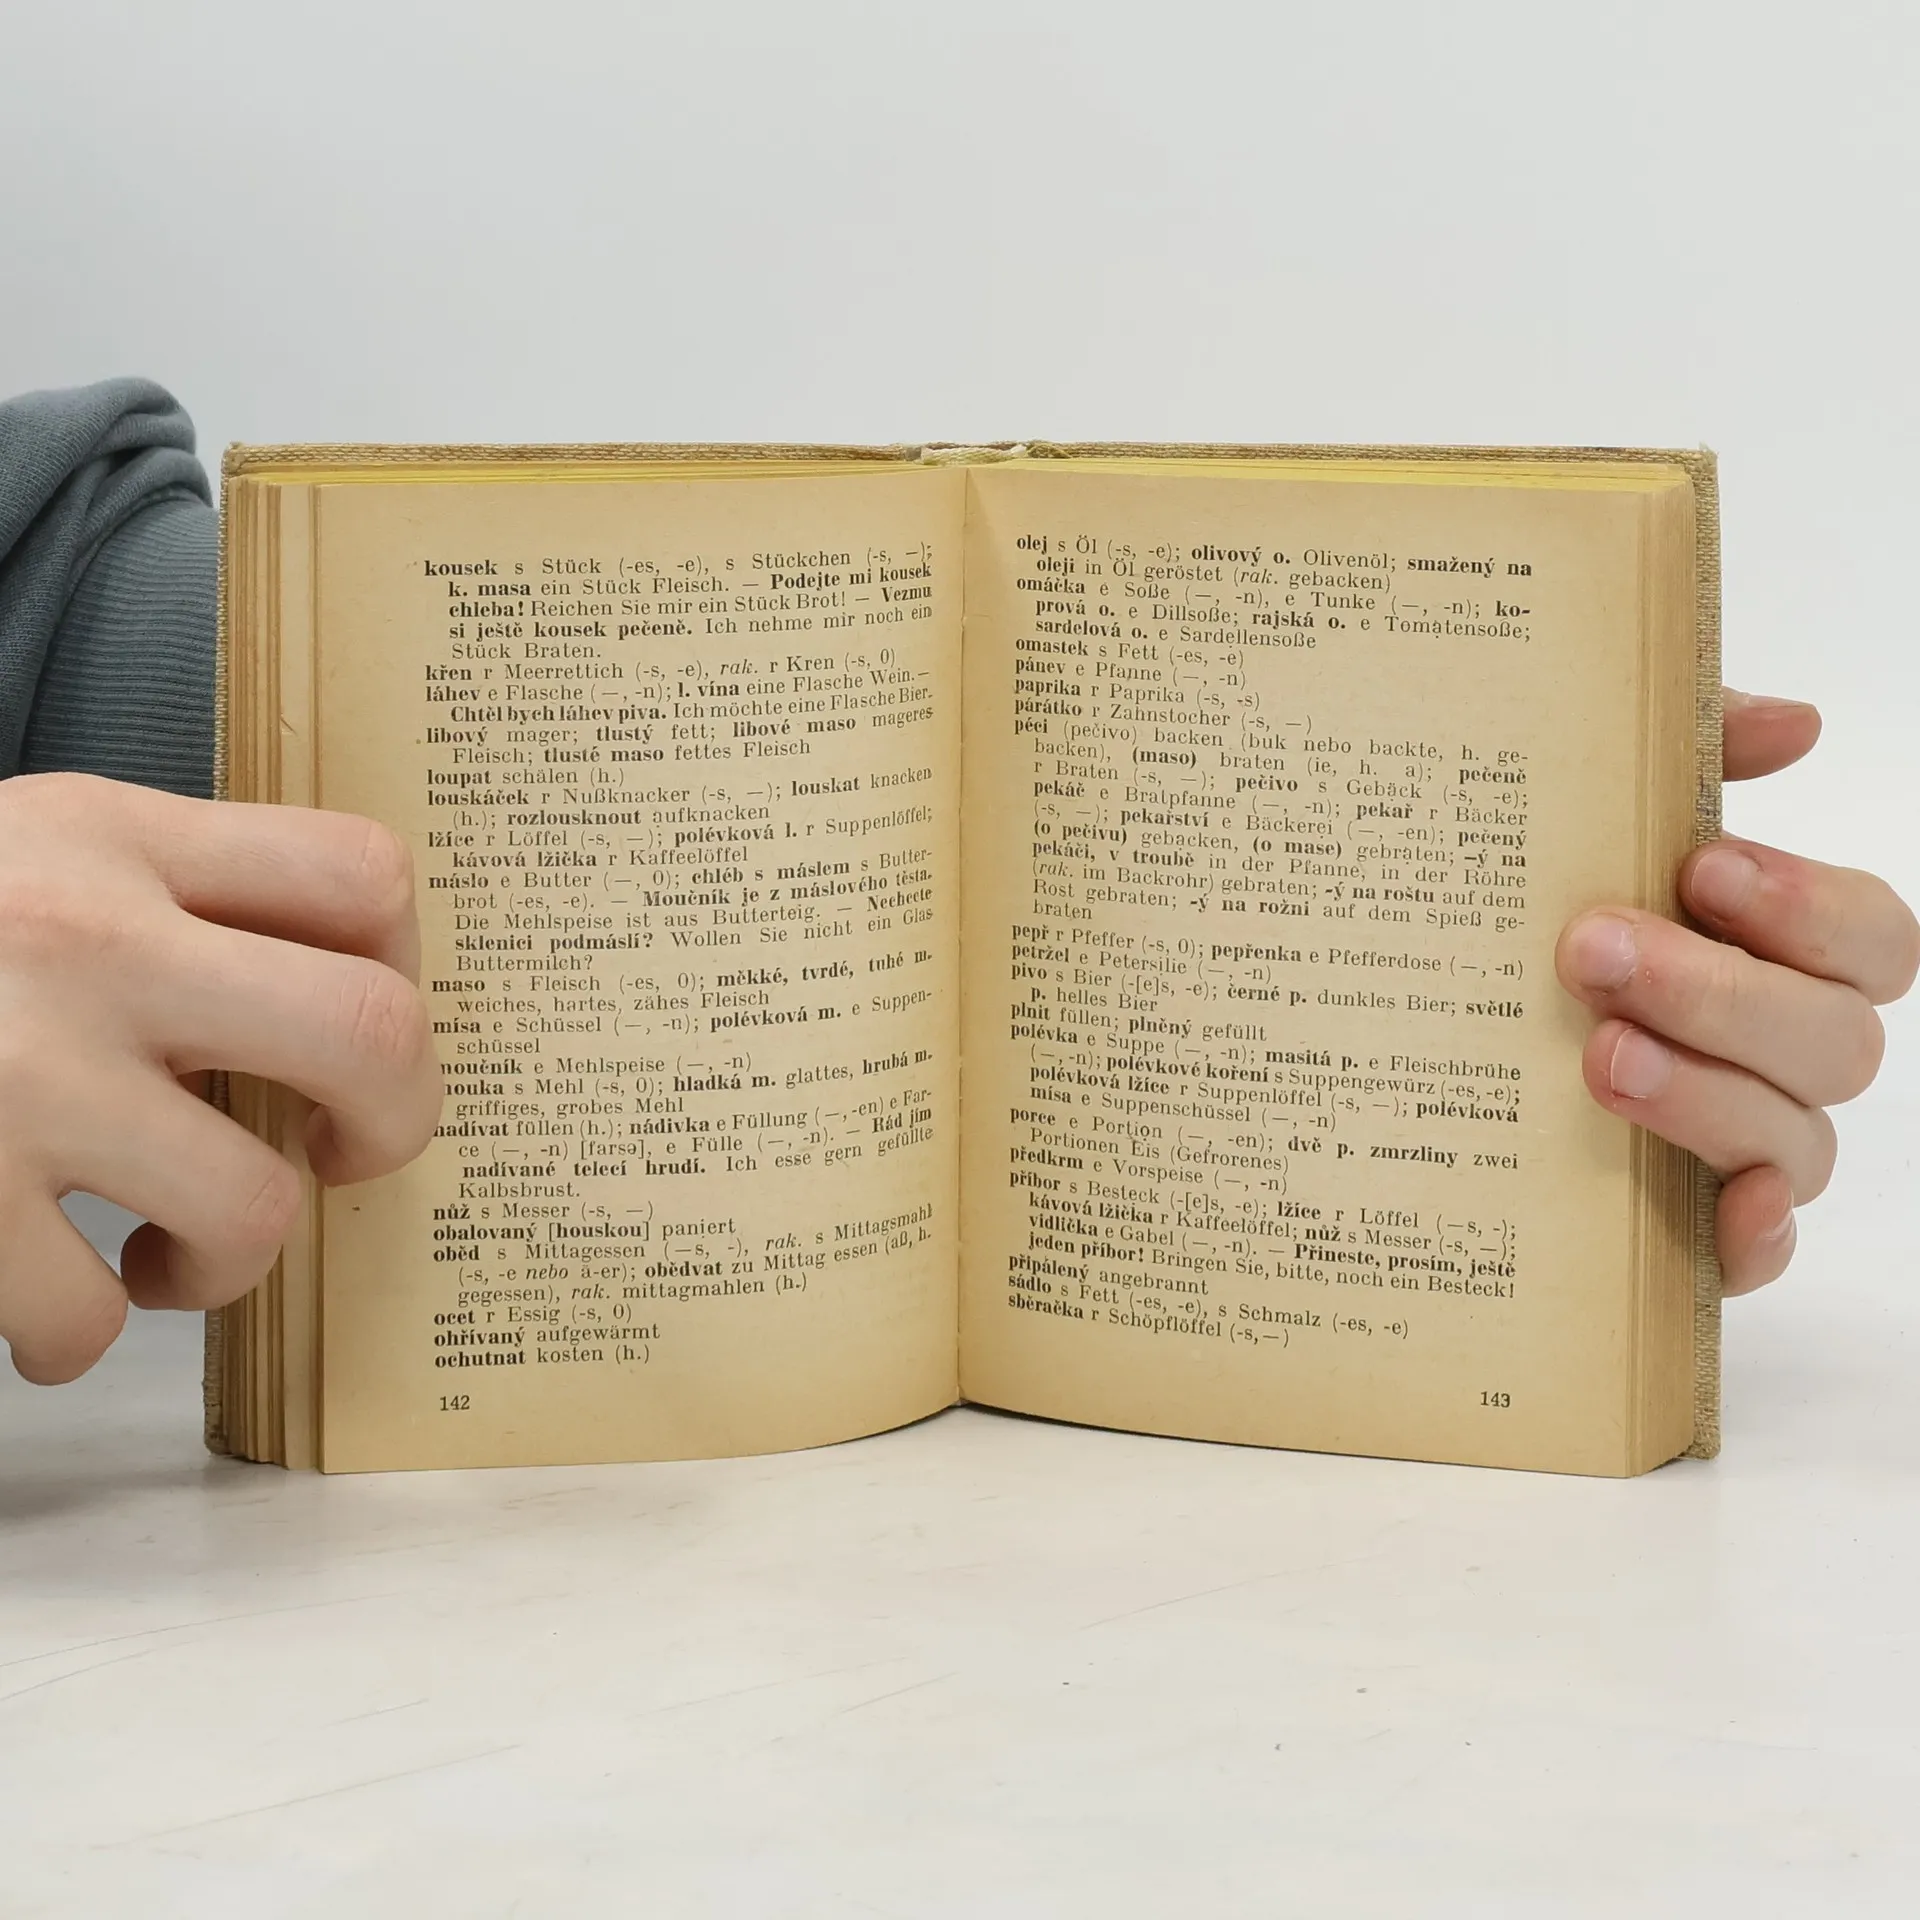 kousek s Stück (-es, -e), s Stückchen (-s, —);
k. masa ein Stück Fleisch. — Podejte mi kousek
chleba! Reichen Sie mir ein Stück Brot! — Vezmu
si ještě kousek pečeně. Ich nehme mir noch ein
Stück Braten.
křen r Meerrettich (-s, -e), rak. r Kren (-s, 0)
láhev e Flasche (—, -n); l. vína eine Flasche Wein. —
Chtěl bych láhev piva. Ich möchte eine Flasche Bier.
libový mager; tlustý fett; libové maso mageres
Fleisch; tlusté maso fettes Fleisch
loupat schälen (h.)
louskáček r Nußknacker (-s, —); louskat knacken
(h.); rozlousknout aufknacken
lžíce r Löffel (-s, —); polévková l. r Suppenlöffel;
kávová lžička r Kaffeelöffel
máslo e Butter (—, 0); chléb s máslem s Butter-
brot (-es, -e). — Moučník je z máslového těsta.
Die Mehlspeise ist aus Butterteig. — Nechcete
sklenici podmáslí? Wollen Sie nicht ein Glas
Buttermilch?
maso s Fleisch (-es, 0); měkké, tvrdé, tuhé m.
weiches, hartes, zähes Fleisch
mísa e Schüssel (—, -n); polévková m. e Suppen-
schüssel
moučník e Mehlspeise (—, -n)
mouka s Mehl (-s, 0); hladká m. glattes, hrubá m.
griffiges, grobes Mehl
nadívat füllen (h.); nádivka e Füllung (—, -en) e Far-
ce (—, -n) [farsə], e Fülle (—, -n). — Rád jím
nadívané telecí hrudí. Ich esse gern gefüllte
Kalbsbrust.
nůž s Messer (-s, —)
obalovaný [houskou] paniert
oběd s Mittagessen (—s, -), rak. s Mittagsmahl
(-s, -e nebo ä-er); obědvat zu Mittag essen (aß, h.
gegessen), rak. mittagmahlen (h.)
ocet r Essig (-s, 0)
ohřívaný aufgewärmt
ochutnat kosten (h.)
142
olej s Öl (-s, -e); olivový o. Olivenöl; smažený na
oleji in Öl geröstet (rak. gebacken)
omáčka e Soße (—, -n), e Tunke (—, -n); ko-
prová o. e Dillsoße; rajská o. e Tomatensoße;
sardelová o. e Sardellensoße
omastek s Fett (-es, -e)
pánev e Pfanne (—, -n)
paprika r Paprika (-s, -s)
párátko r Zahnstocher (-s, —)
péci (pečivo) backen (buk nebo backte, h. ge-
backen), (maso) braten (ie, h. a); pečeně
r Braten (-s, —); pečivo s Gebäck (-s, -e);
pekáč e Bratpfanne (—, -n); pekař r Bäcker
(-s, —); pekařství e Bäckerei (—, -en); pečený
(o pečivu) gebacken, (o mase) gebraten; -ý na
pekáči, v troubě in der Pfanne, in der Röhre
(rak. im Backrohr) gebraten; -ý na roštu auf dem
Rost gebraten; -ý na rožni auf dem Spieß ge-
braten
pepř r Pfeffer (-s, 0); pepřenka e Pfefferdose (—, -n)
petržel e Petersilie (—, -n)
pivo s Bier (-[e]s, -e); černé p. dunkles Bier; světlé
p. helles Bier
plnit füllen; plněný gefüllt
polévka e Suppe (—, -n); masitá p. e Fleischbrühe
(—, -n); polévkové koření s Suppengewürz (-es, -e);
polévková lžíce r Suppenlöffel (-s, —); polévková
mísa e Suppenschüssel (—, -n)
porce e Portion (—, -en); dvě p. zmrzliny zwei
Portionen Eis (Gefrorenes)
předkrm e Vorspeise (—, -n)
příbor s Besteck (-[e]s, -e); lžíce r Löffel (—s, -);
kávová lžička r Kaffeelöffel; nůž s Messer (-s, —);
vidlička e Gabel (—, -n). — Přineste, prosím, ještě
jeden příbor! Bringen Sie, bitte, noch ein Besteck!
připálený angebrannt
sádlo s Fett (-es, -e), s Schmalz (-es, -e)
sběračka r Schöpflöffel (-s, —)
143